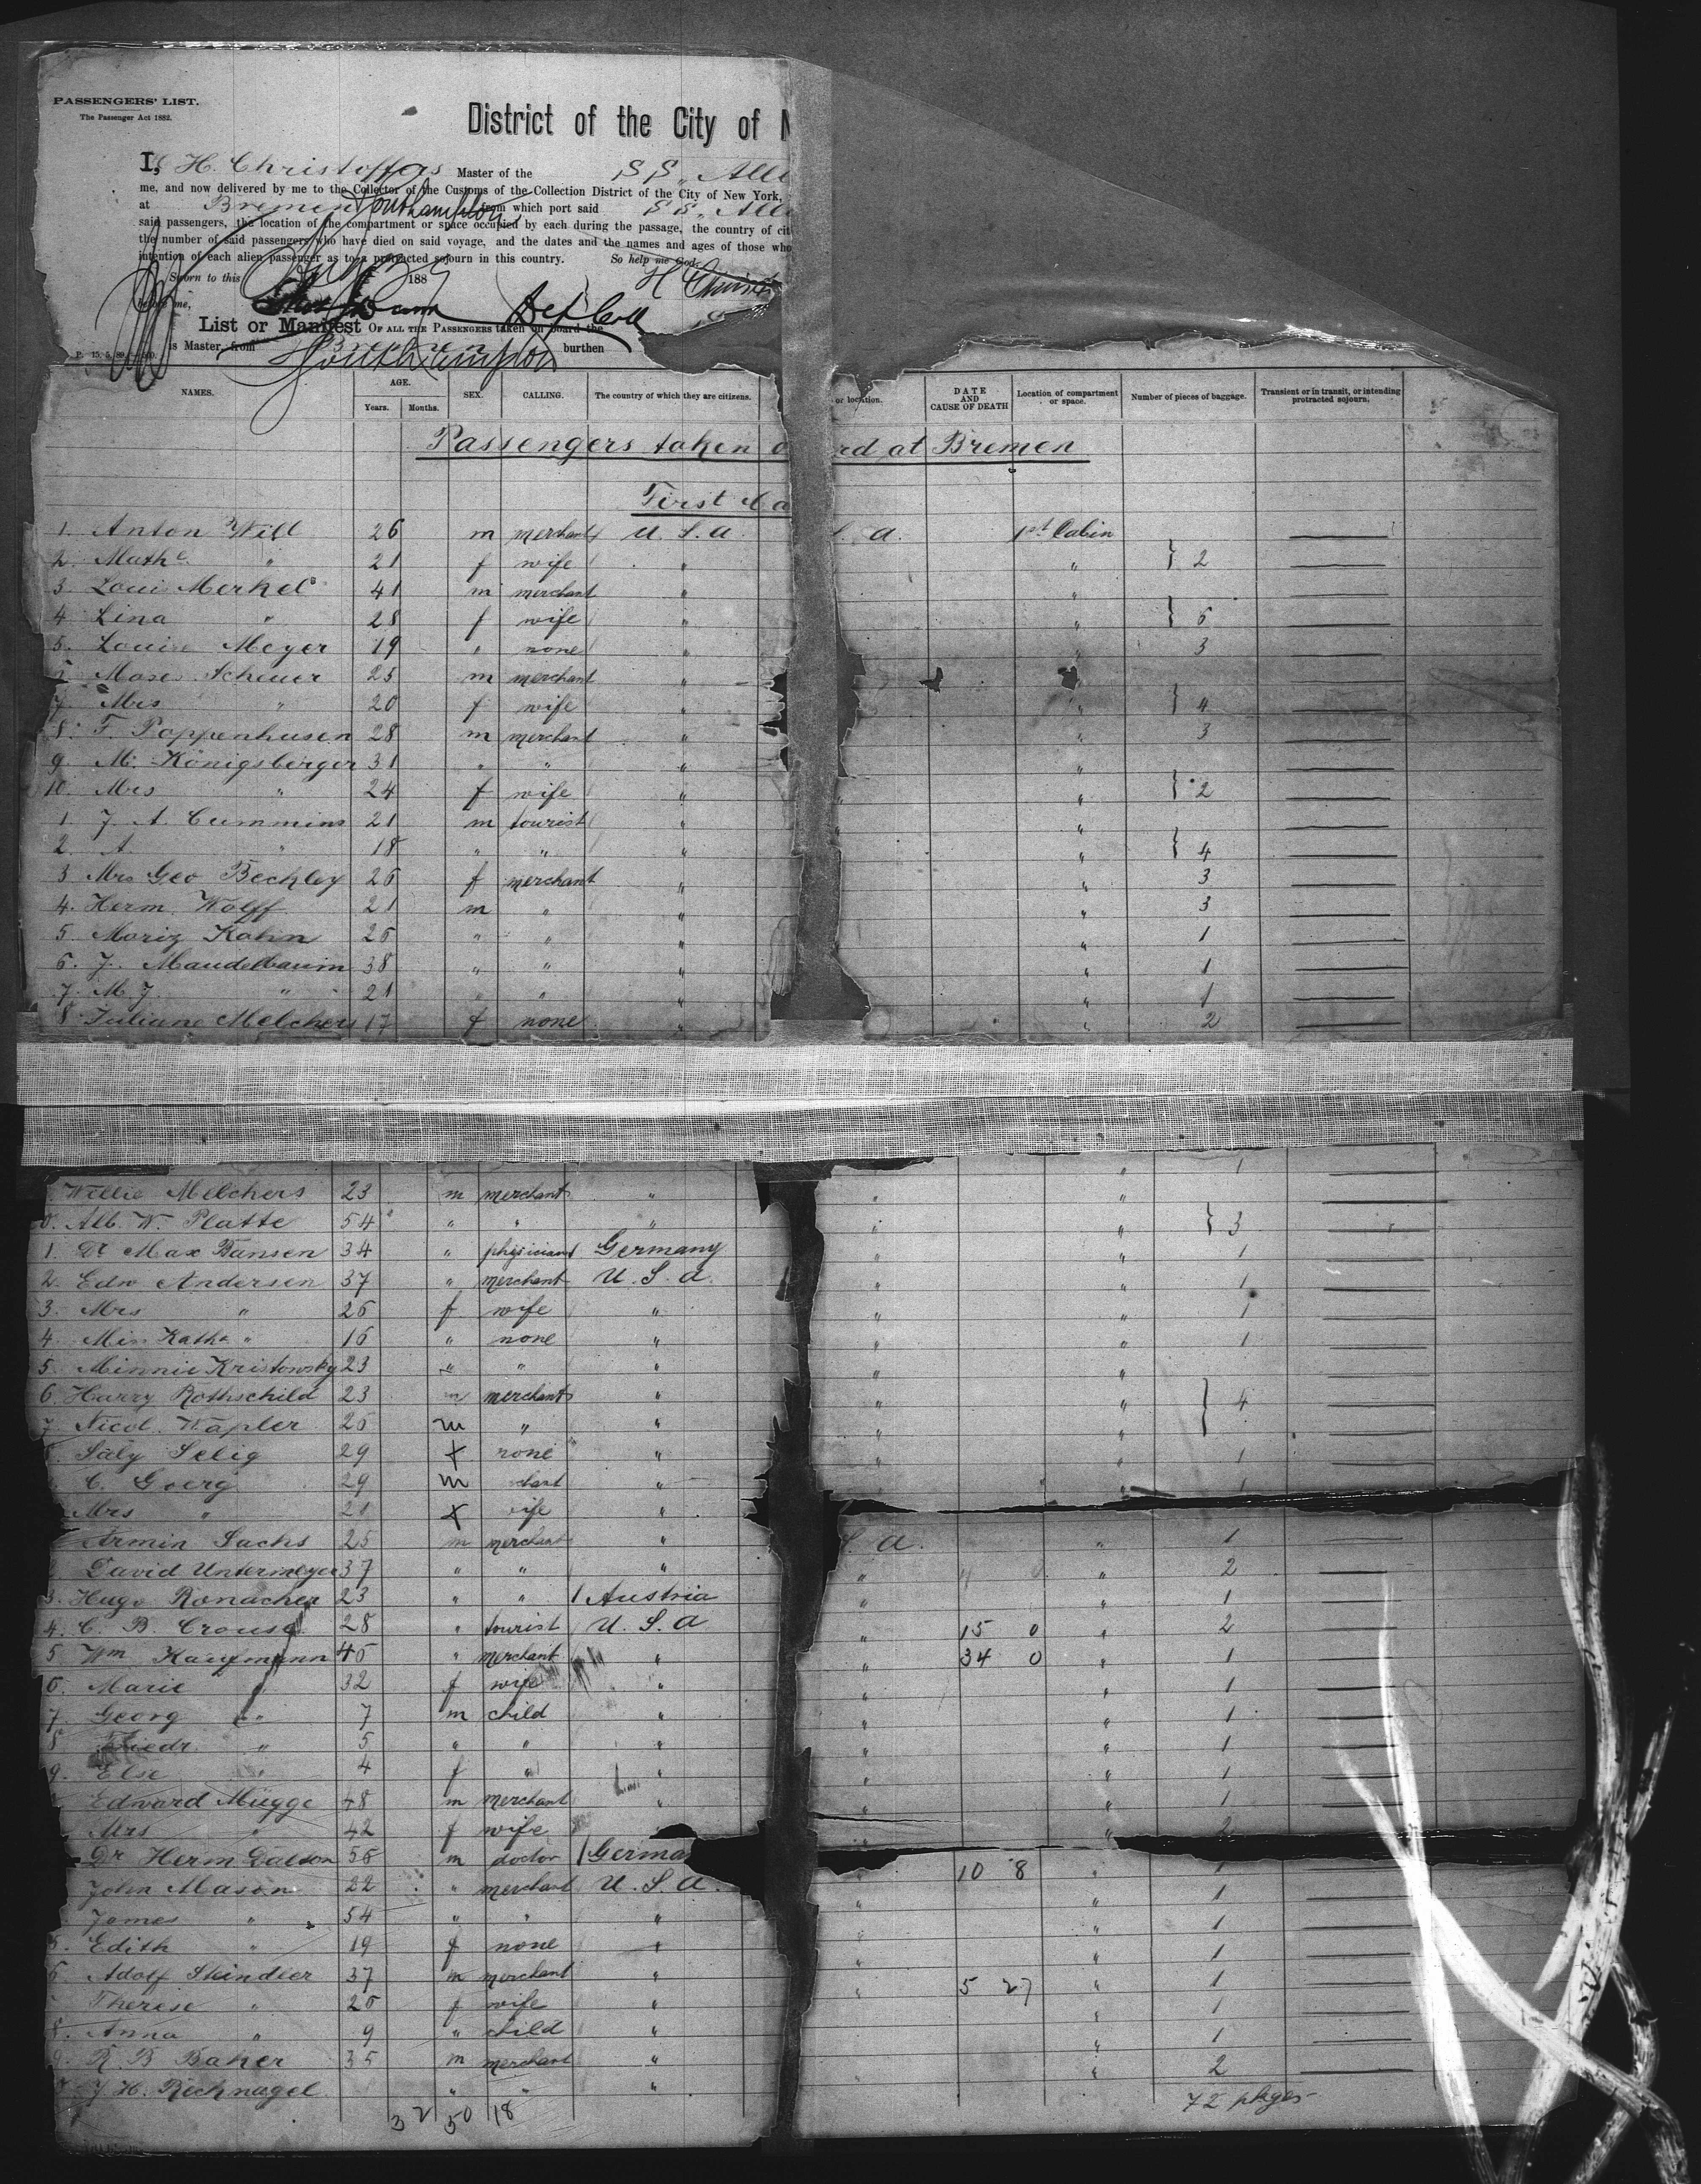 PASSENGERS' LIST.
The Passenger Act 1882.
District of the City of N
I, H. Christoffers Master of the SS. "Alle
me, and now delivered by me to the Collector of the Customs of the Collection District of the City of New York,
at Bremen Southampton from which port said SS. "Alle
said passengers, the location of the compartment or space occupied by each during the passage, the country of cit
the number of said passengers who have died on said voyage, and the dates and the names and ages of those who
intention of each alien passenger as to a protracted sojourn in this country. So help me God.
Sworn to this 188 H Christ
before me,
List or Manifest OF ALL THE PASSENGERS taken on board the
is Master, from Bremen Southampton burthen
NAMES. AGE. Years. Months. SEX. CALLING. The country of which they are citizens. or location. DATE AND CAUSE OF DEATH Location of compartment or space. Number of pieces of baggage. Transient or in transit, or intending protracted sojourn.
Passengers taken o rd at Bremen
First Ca
1. Anton Will 26 m merchant U. S. A. S. A. 1st Cabin
2. Mathe " 21 f wife " " } 2
3. Loui Merkel 41 m merchant " "
4. Lina " 28 f wife " " } 6
5. Louise Meyer 19 " none " " 3
Moses Scheuer 25 m merchant "
7. Mrs " 20 f wife " " } 4
8. F. Poppenhusen 28 m merchant " " 3
9. M. Königsberger 31 " " " "
10. Mrs " 24 f wife " " " } 2
1. J. A. Cummins 21 m tourist " " "
2. A. " 18 " " " " } 4
3 Mrs Geo Bechley 26 f merchant " " 3
4. Herm. Wolff 21 m " " " 3
5 Moriz Kahn 26 " " " " 1
6. J. Mandelbaum 38 " " " " 1
7. M. J. " 21 " " " " 1
8 Juliane Melchers 17 f none " " 2
" 1
Willie Melchers 23 m merchant " " "
0. Alb. W. Platte 54 " " " " } 3
1. Dr Max Jansen 34 " physician Germany " " 1
2. Edw Andersen 37 " merchant U. S. A. " " 1
3. Mrs " 26 f wife " " " 1
4. Miss Katha " 16 " none " " " 1
5. Minnie Kristowsky 23 " " " " "
6 Harry Rothschild 23 m merchant " " " } 4
7 Nicol. Wapler 26 m " " " "
Saly Selig 29 f none " " " 1
C. Goerg 29 m chant " " 1
Mrs " 21 f ife "
Armin Sachs 25 m merchant " S. A. " 1
2. David Untermeyer 37 " " " " " 2
3. Hugo Ronacher 23 " " Austria " " 1
4. C. B. Crouse 28 " tourist U. S. A " 15 0 " 2
5 Wm Kaufmann 45 " merchant " " 34 0 " 1
6. Marie " 32 f wife " " " 1
7 Georg " 7 m child " " " 1
8 Friedr. " 5 " " " " " 1
9. Else " 4 f " " " " 1
Edward Mügge 48 m merchant " " " 1
Mrs " 42 f wife " " 2
Dr Herm. Dalton 56 m doctor Germa " 10 8 " 1
John Mason 22 " merchant U. S. A. " " 1
James " 54 " " " " " 1
5. Edith " 19 f none " " " 1
6 Adolf Stindler 37 m merchant " " 5 27 " 1
Therese " 26 f wife " " 1
8. Anna " 9 " child " " 1
9. R. B Baker 35 m merchant " " 2
J. H. Recknagel " " "
32 50 18
72 pkges